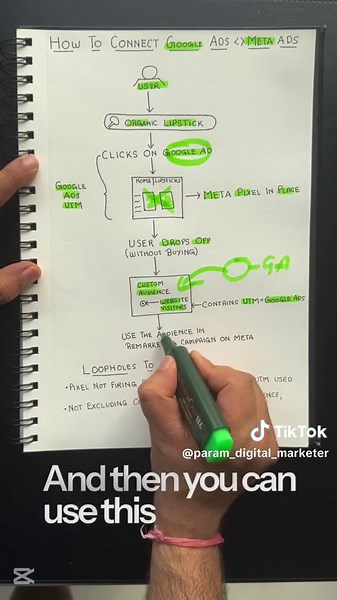 HOW TO CONNECT GOOGLE ADS <> META ADS
USER
ORGANIC LIPSTICK
CLICKS ON GOOGLE AD
GOOGLE
ADS
UTM
HOME LIPSTICKS
META PIXEL IN PLACE
USER DROPS OFF
(WITHOUT BUYING)
GA
CUSTOM
AUDIENCE
WEBSITE
VISITORS
CONTAINS UTM = GOOGLE ADS
USE THE AUDIENCE IN
REMARKETING CAMPAIGN ON META
LOOPHOLES TO
• PIXEL NOT FIRING UTM USED
• NOT EXCLUDING
TikTok
@param_digital_marketer
And then you can
use this